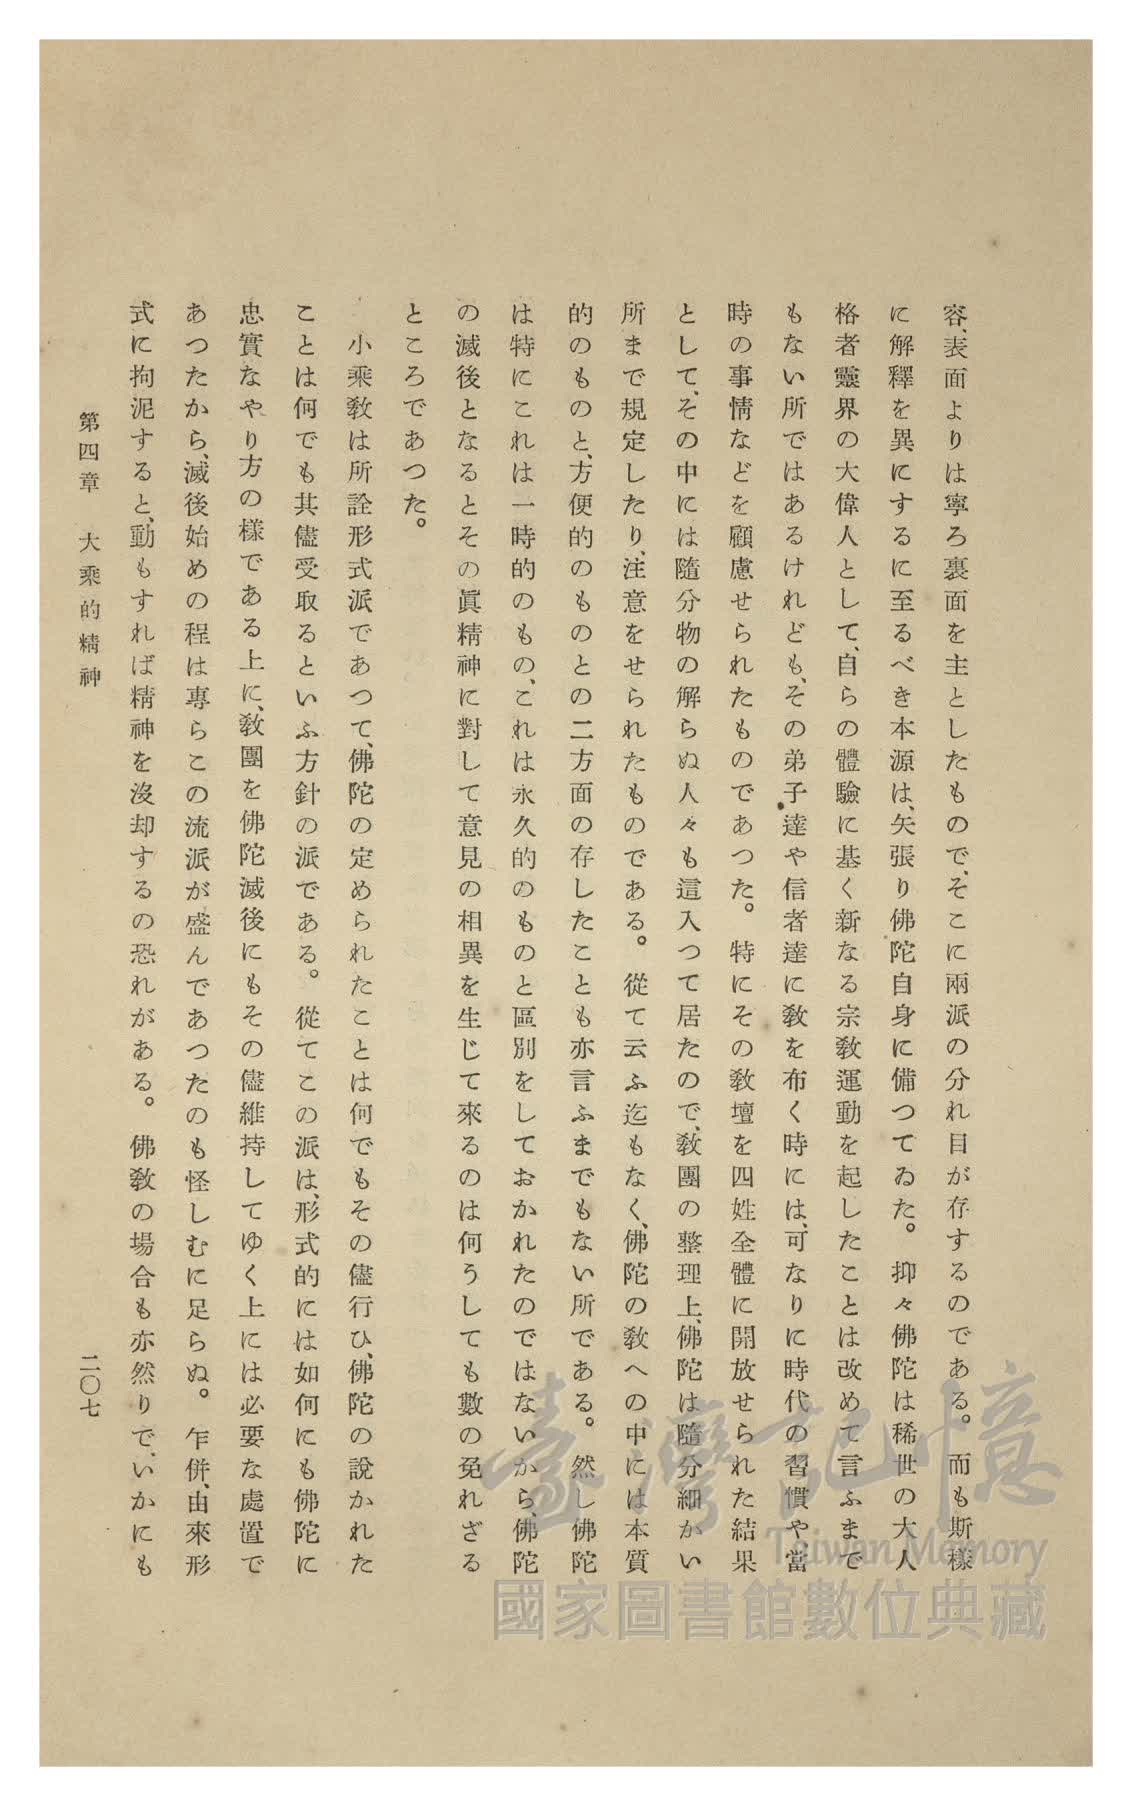 容、表面よりは寧ろ裏面を主としたもので、そこに兩派の分れ目が存するのである。而も斯樣
に解釋を異にするに至るべき本源は、矢張り佛陀自身に備つてゐた。抑々佛陀は稀世の大人
格者靈界の大偉人として、自らの體驗に基く新なる宗敎運動を起したことは改めて言ふまで
もない所ではあるけれども、その弟子達や信者達に敎を布く時には、可なりに時代の習慣や當
時の事情などを顧慮せられたものであつた。特にその敎壇を四姓全體に開放せられた結果
として、その中には隨分物の解らぬ人々も這入つて居たので、敎團の整理上、佛陀は隨分細かい
所まで規定したり、注意をせられたものである。從て云ふ迄もなく、佛陀の敎への中には本質
的のものと、方便的のものとの二方面の存したことも亦言ふまでもない所である。然し佛陀
は特にこれは一時的のもの、これは永久的のものと區別をしておかれたのではないから、佛陀
の滅後となるとその眞精神に對して意見の相異を生じて來るのは何うしても數の免れざる
ところであつた。
小乘敎は所詮形式派であつて、佛陀の定められたことは何でもその儘行ひ、佛陀の說かれた
ことは何でも其儘受取るといふ方針の派である。從てこの派は、形式的には如何にも佛陀に
忠實なやり方の樣である上に、敎團を佛陀滅後にもその儘維持してゆく上には必要な處置で
あつたから、滅後始めの程は專らこの流派が盛んであつたのも怪しむに足らぬ。乍併、由來形
式に拘泥すると、動もすれば精神を沒却するの恐れがある。佛敎の場合も亦然りで、いかにも
第四章　大乘的精神
二〇七
臺灣記憶
Taiwan Memory
國家圖書館數位典藏